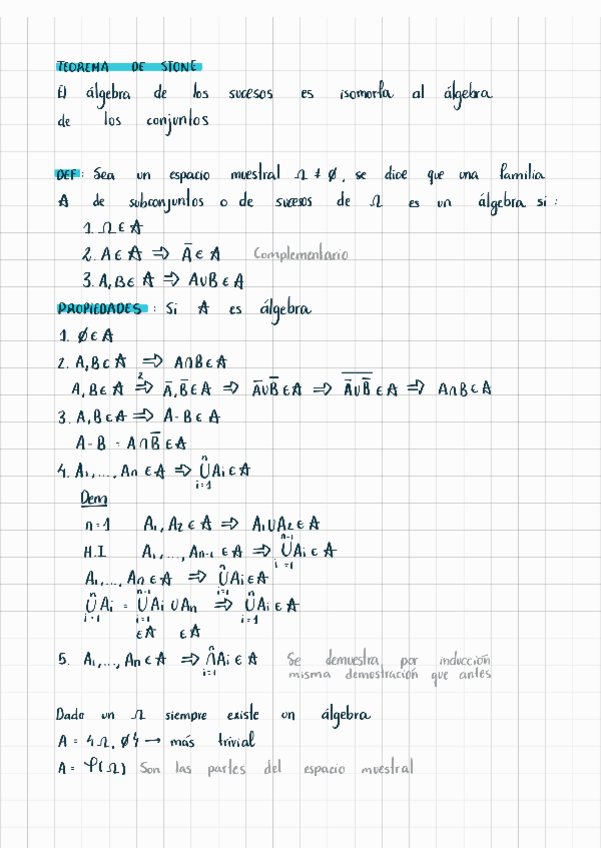 TEOREMA DE STONE
El álgebra de los sucesos es isomorfa al álgebra
de los conjuntos
DEF: Sea un espacio muestral Ω ≠ ∅, se dice que una familia
A de subconjuntos o de sucesos de Ω es un álgebra si:
1. Ω ∈ A
2. A ∈ A ⇒ A̅ ∈ A Complementario
3. A, B ∈ A ⇒ A∪B ∈ A
PROPIEDADES: Si A es álgebra
1. ∅ ∈ A
2. A, B ∈ A ⇒ A∩B ∈ A
A, B ∈ A ⇒² A̅, B̅ ∈ A ⇒ A̅∪B̅ ∈ A ⇒ \overline{A̅∪B̅} ∈ A ⇒ A∩B ∈ A
3. A, B ∈ A ⇒ A-B ∈ A
A-B = A∩B̅ ∈ A
4. A₁, ..., An ∈ A ⇒ ⋃ᵢ₌₁ⁿ Ai ∈ A
Dem
n=1 A₁, A₂ ∈ A ⇒ A₁∪A₂ ∈ A
H.I A₁, ..., An-1 ∈ A ⇒ ⋃ᵢ₌₁ⁿ⁻¹ Ai ∈ A
A₁, ..., An ∈ A ⇒ ⋃ᵢ₌₁ⁿ Ai ∈ A
⋃ᵢ₌₁ⁿ Ai = ⋃ᵢ₌₁ⁿ⁻¹ Ai ∪ An ⇒ ⋃ᵢ₌₁ⁿ Ai ∈ A
∈A ∈A
5. A₁, ..., An ∈ A ⇒ ⋂ᵢ₌₁ⁿ Ai ∈ A Se demuestra por inducción
misma demostración que antes
Dado un Ω siempre existe un álgebra
A = {Ω, ∅} → más trivial
A = P(Ω) Son las partes del espacio muestral